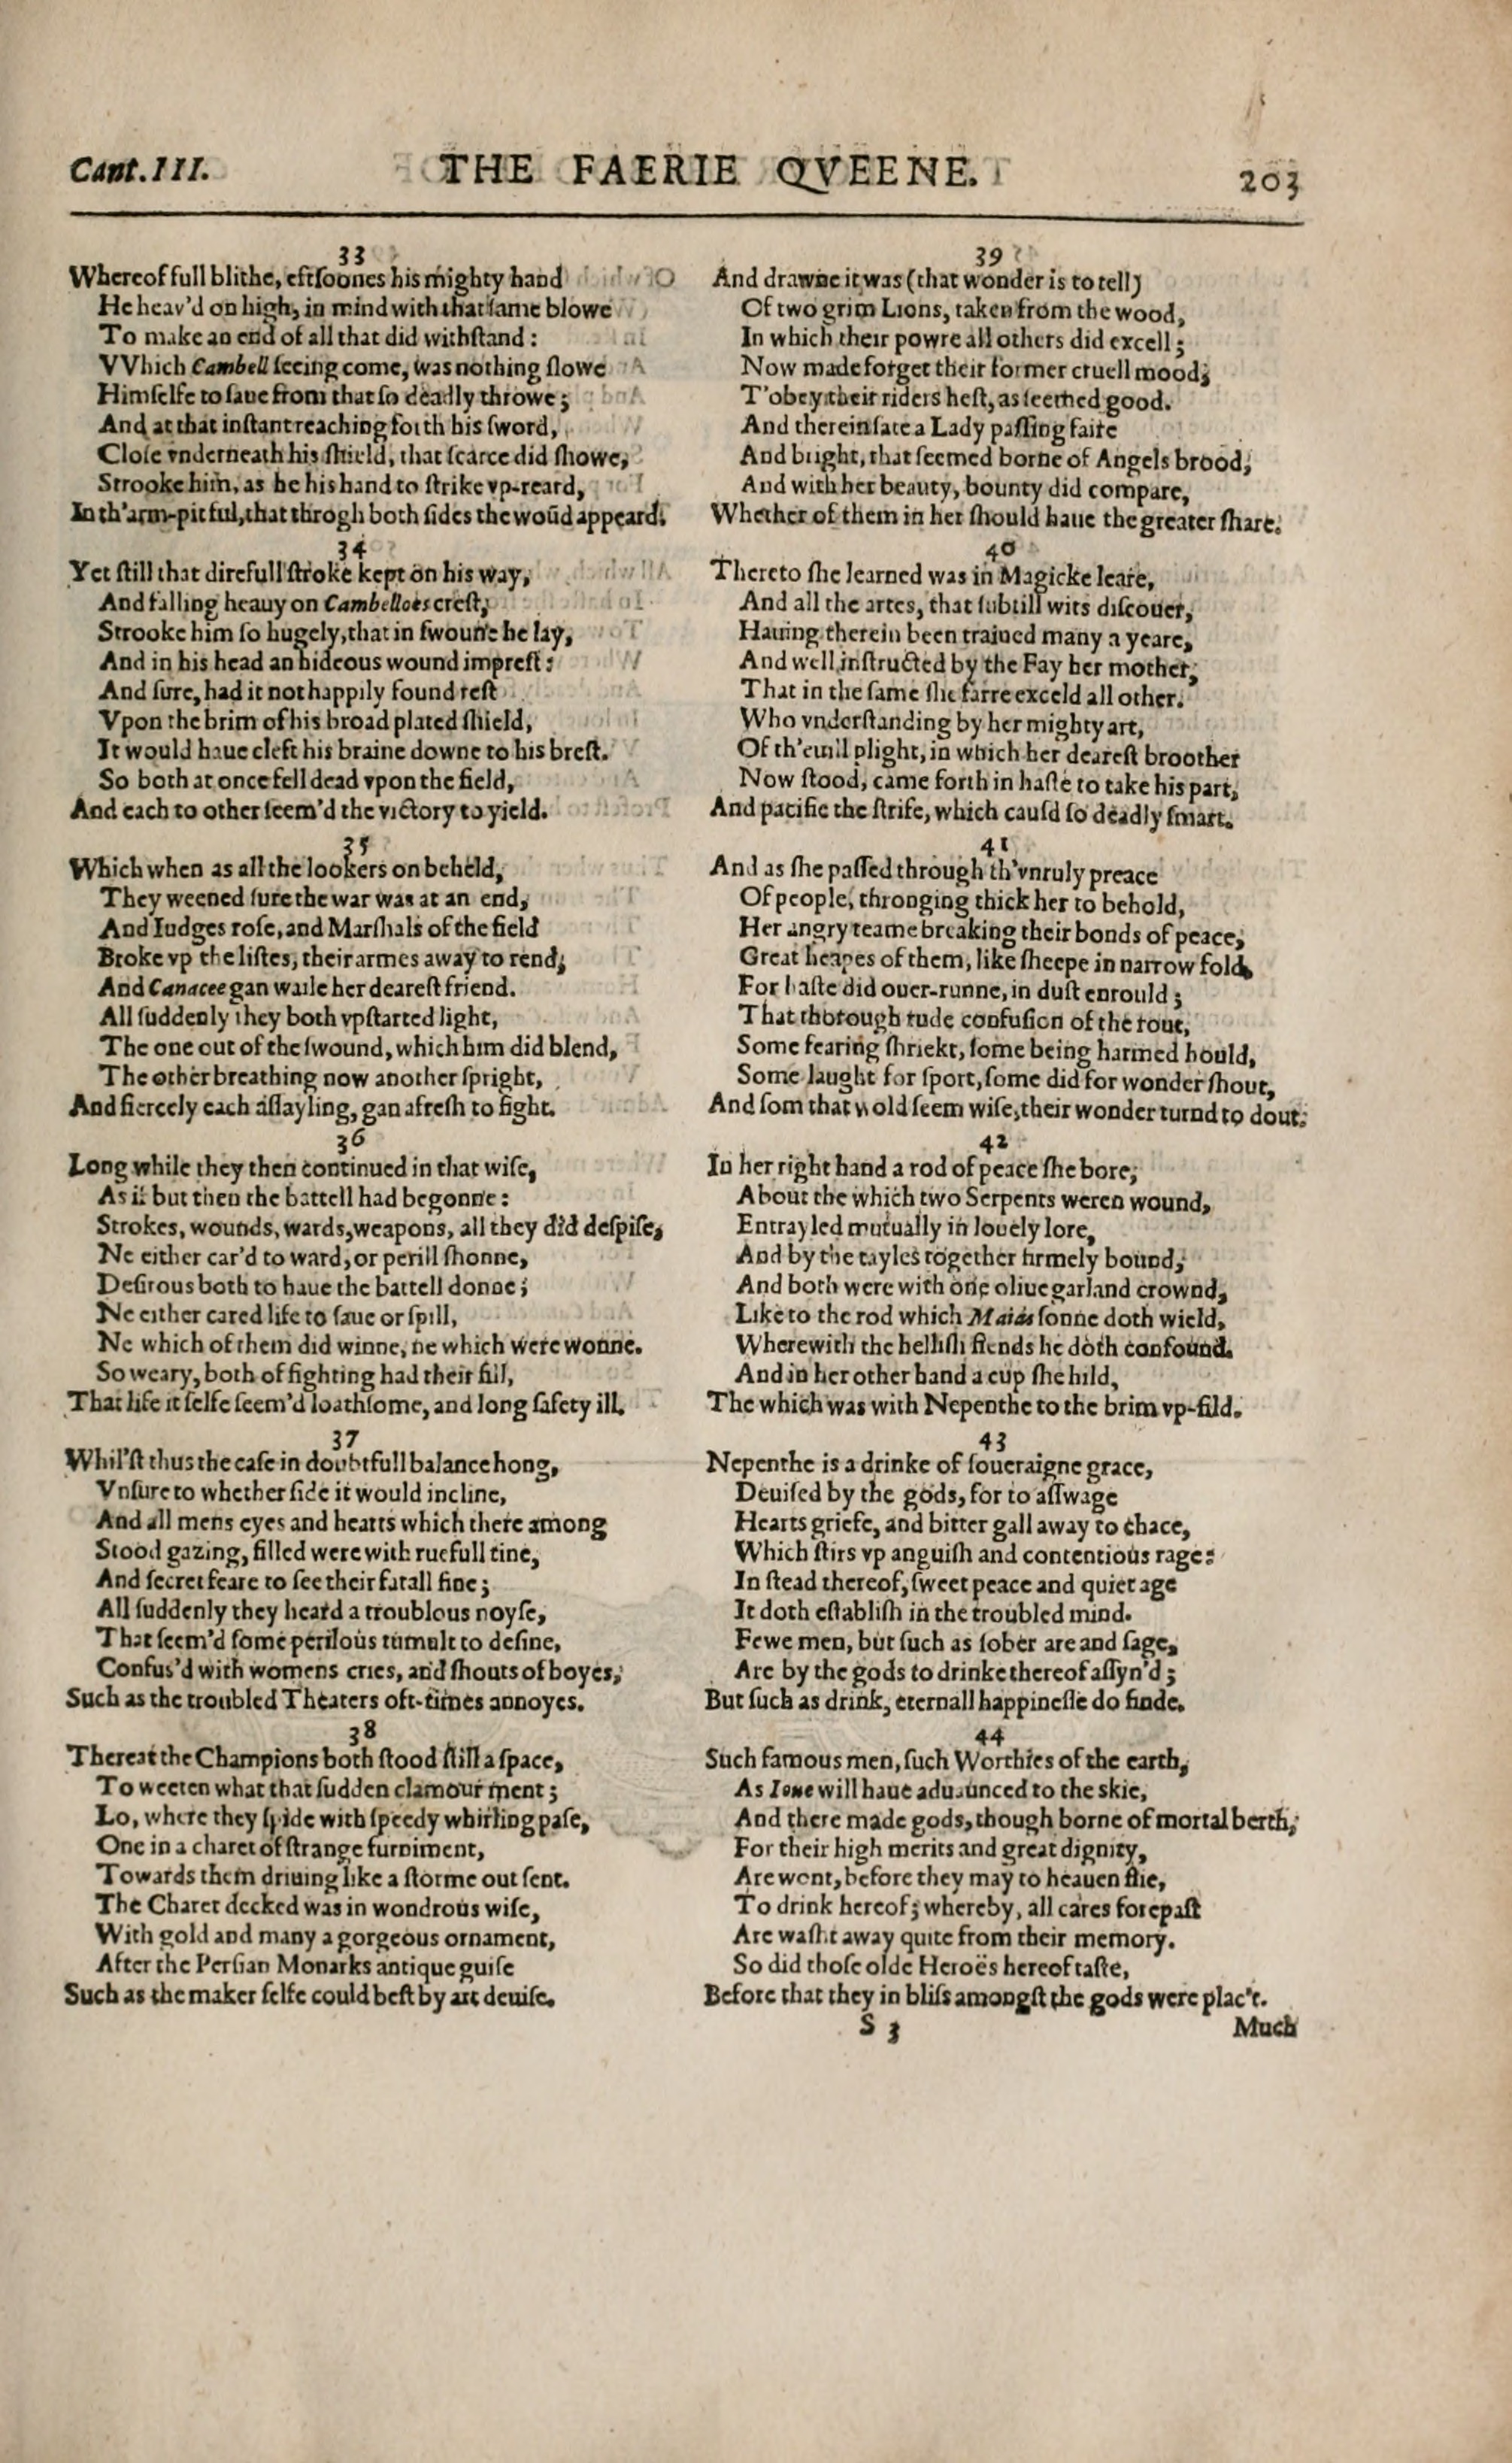 Cant.III.
THE FAERIE QVEENE.
203
33
Whereof full blithe, eftſoones his mighty hand
He heav'd on high, in mind with that ſame blowe
To make an end of all that did withſtand:
VVhich Cambell ſeeing come, was nothing ſlowe
Himſelfe to ſaue from that ſo deadly throwe;
And at that inſtant reaching forth his ſword,
Cloſe vnderneath his ſhield, that ſcarce did ſhowe,
Strooke him, as he his hand to ſtrike vp-reard,
In th'arm-pit ful, that throgh both ſides the woũd appeard.
34
Yet ſtill that direfull ſtroke kept on his way,
And falling heauy on Cambelloes creſt,
Strooke him ſo hugely, that in ſwoune he lay,
And in his head an hideous wound impreſt:
And ſure, had it not happily found reſt
Vpon the brim of his broad plated ſhield,
It would haue cleft his braine downe to his breſt.
So both at once fell dead vpon the field,
And each to other ſeem'd the victory to yield.
35
Which when as all the lookers on beheld,
They weened ſure the war was at an end,
And Iudges roſe, and Marſhals of the field
Broke vp the liſtes, their armes away to rend;
And Canacee gan waile her deareſt friend.
All ſuddenly they both vpſtarted light,
The one out of the ſwound, which him did blend,
The other breathing now another ſpright,
And fiercely each aſſayling, gan afreſh to fight.
36
Long while they then continued in that wiſe,
As if but then the battell had begonne:
Strokes, wounds, wards, weapons, all they did deſpiſe,
Ne either car'd to ward, or perill ſhonne,
Deſirous both to haue the battell donne;
Ne either cared life to ſaue or ſpill,
Ne which of them did winne, ne which were wonne.
So weary, both of fighting had their fill,
That life it ſelfe ſeem'd loathſome, and long ſafety ill.
37
Whil'ſt thus the caſe in doubtfull balance hong,
Vnſure to whether ſide it would incline,
And all mens eyes and hearts which there among
Stood gazing, filled were with ruefull tine,
And ſecret feare to ſee their fatall fine;
All ſuddenly they heard a troublous noyſe,
That ſeem'd ſome perilous tumult to deſine,
Confus'd with womens cries, and ſhouts of boyes,
Such as the troubled Theaters oft-times annoyes.
38
Thereat the Champions both ſtood ſtill a ſpace,
To weeten what that ſudden clamour ment;
Lo, where they ſpide with ſpeedy whirling paſe,
One in a charet of ſtrange furniment,
Towards them driuing like a ſtorme out ſent.
The Charet decked was in wondrous wiſe,
With gold and many a gorgeous ornament,
After the Perſian Monarks antique guiſe
Such as the maker ſelfe could beſt by art deuiſe.
39
And drawne it was (that wonder is to tell)
Of two grim Lions, taken from the wood,
In which their powre all others did excell;
Now made forget their former cruell mood;
T'obey their riders heſt, as ſeemed good.
And therein ſate a Lady paſſing faire
And bright, that ſeemed borne of Angels brood;
And with her beauty, bounty did compare,
Whether of them in her ſhould haue the greater ſhare.
40
Thereto ſhe learned was in Magicke leare,
And all the artes, that ſubtill wits diſcouer,
Hauing therein been trained many a yeare,
And well inſtructed by the Fay her mother,
That in the ſame ſhe farre exceld all other.
Who vnderſtanding by her mighty art,
Of th'euill plight, in which her deareſt broother
Now ſtood, came forth in haſte to take his part,
And pacifie the ſtrife, which cauſd ſo deadly ſmart.
41
And as ſhe paſſed through th'vnruly preace
Of people, thronging thick her to behold,
Her angry teame breaking their bonds of peace,
Great heapes of them, like ſheepe in narrow fold,
For haſte did ouer-runne, in duſt enrould;
That thorough rude confuſion of the rout,
Some fearing ſhriekt, ſome being harmed hould,
Some laught for ſport, ſome did for wonder ſhout,
And ſom that wold ſeem wiſe, their wonder turnd to dout.
42
In her right hand a rod of peace ſhe bore,
About the which two Serpents weren wound,
Entrayled mutually in louely lore,
And by the tayles together firmely bound,
And both were with one oliue garland crownd,
Like to the rod which Maias ſonne doth wield,
Wherewith the helliſh fiends he doth confound.
And in her other hand a cup ſhe hild,
The which was with Nepenthe to the brim vp-fild.
43
Nepenthe is a drinke of ſoueraigne grace,
Deuiſed by the gods, for to aſſwage
Hearts griefe, and bitter gall away to chace,
Which ſtirs vp anguiſh and contentious rage:
In ſtead thereof, ſweet peace and quiet age
It doth eſtabliſh in the troubled mind.
Fewe men, but ſuch as ſober are and ſage,
Are by the gods to drinke thereof aſſyn'd;
But ſuch as drink, eternall happineſſe do finde.
44
Such famous men, ſuch Worthies of the earth,
As Ioue will haue aduaunced to the skie,
And there made gods, though borne of mortal berth,
For their high merits and great dignity,
Are wont, before they may to heauen flie,
To drink hereof; whereby, all cares forepaſt
Are waſht away quite from their memory.
So did thoſe olde Heroës hereof taſte,
Before that they in bliſs amongſt the gods were plac't.
S 3
Much